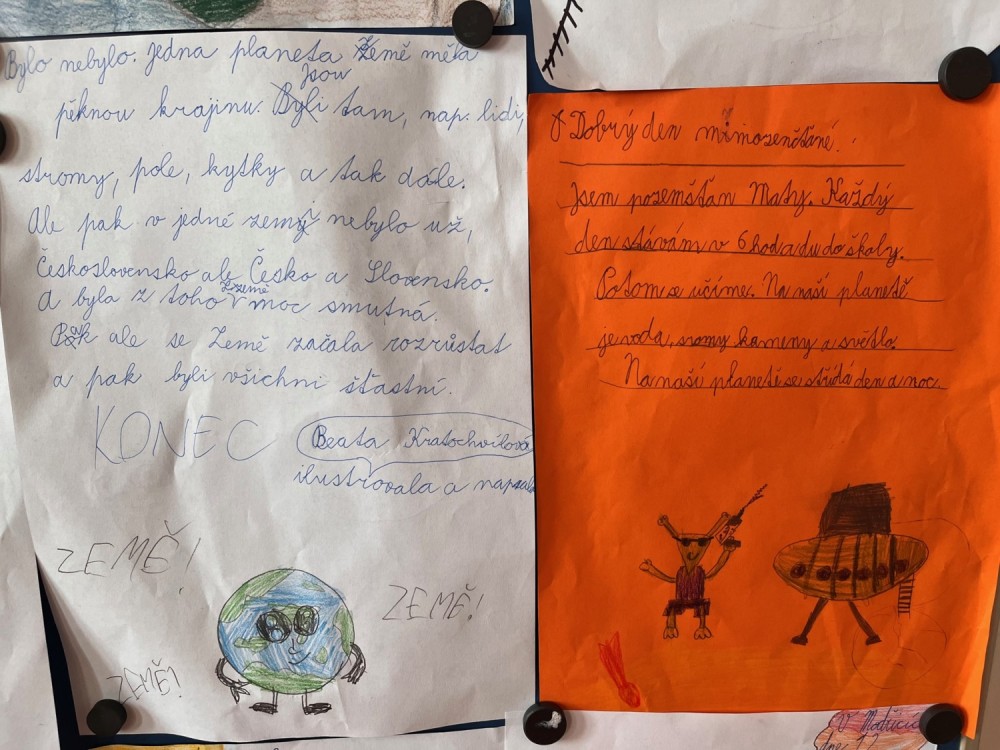 Bylo nebylo. Jedna planeta Země měla
Jsou
pěknou krajinu. Byli tam, nap. lidi,
stromy, pole, kytky a tak dále.
Ale pak v jedné zemi nebylo už,
Československo ale Česko a Slovensko.
Země
A byla z toho moc smutná.
Pak ale se Země začala rozrůstat
a pak byli všichni šťastní.
KONEC
Beata Kratochvilová
ilustrovala a napsala
ZEMĚ!
ZEMĚ!
ZEMĚ!
Dobrý den mimozenšťané.
Jsem pozemšťan Maty. Každý
den stávám v 6 hod a du do školy.
Potom se učíme. Na naší planetě
je voda, sromy kameny a světlo.
Na naší planetě se střídá den a noc.